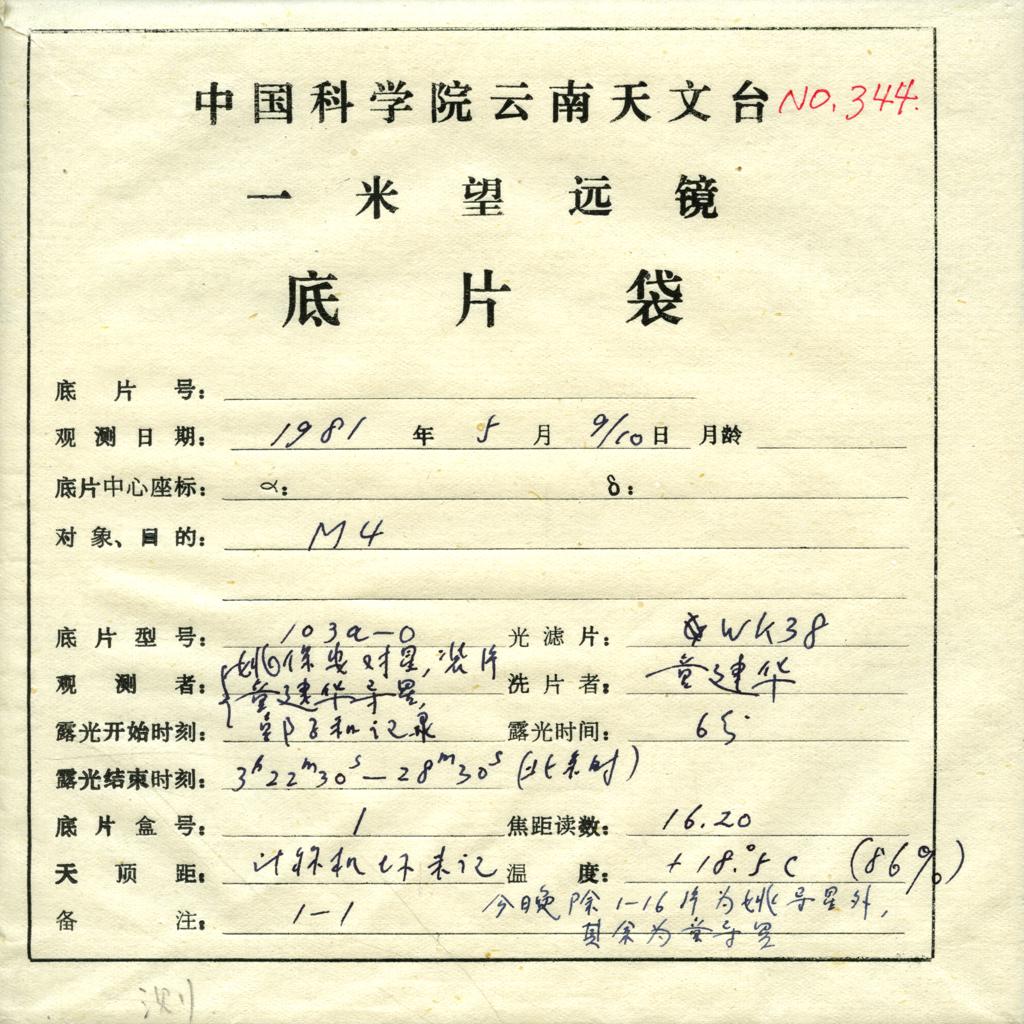 中国科学院云南天文台 NO.344.
一米望远镜
底片袋
底片号：
观测日期： 1981 年 5 月 9/10 日 月龄
底片中心座标： α： δ：
对象、目的： M4
底片型号： 103a-O 光滤片： WK38
观测者： 姚保安对星，装片 洗片者： 童建华
童建华导星，
露光开始时刻： 郭子和记录 露光时间： 6分
露光结束时刻： 3h22m30s—28m30s (北京时)
底片盒号： 1 焦距读数： 16.20
天顶距： 计算机坏未记 温度： +18.°5C (86%)
备注： 1-1 今日晚除1-16片为姚导星外，
其余为童导星
测